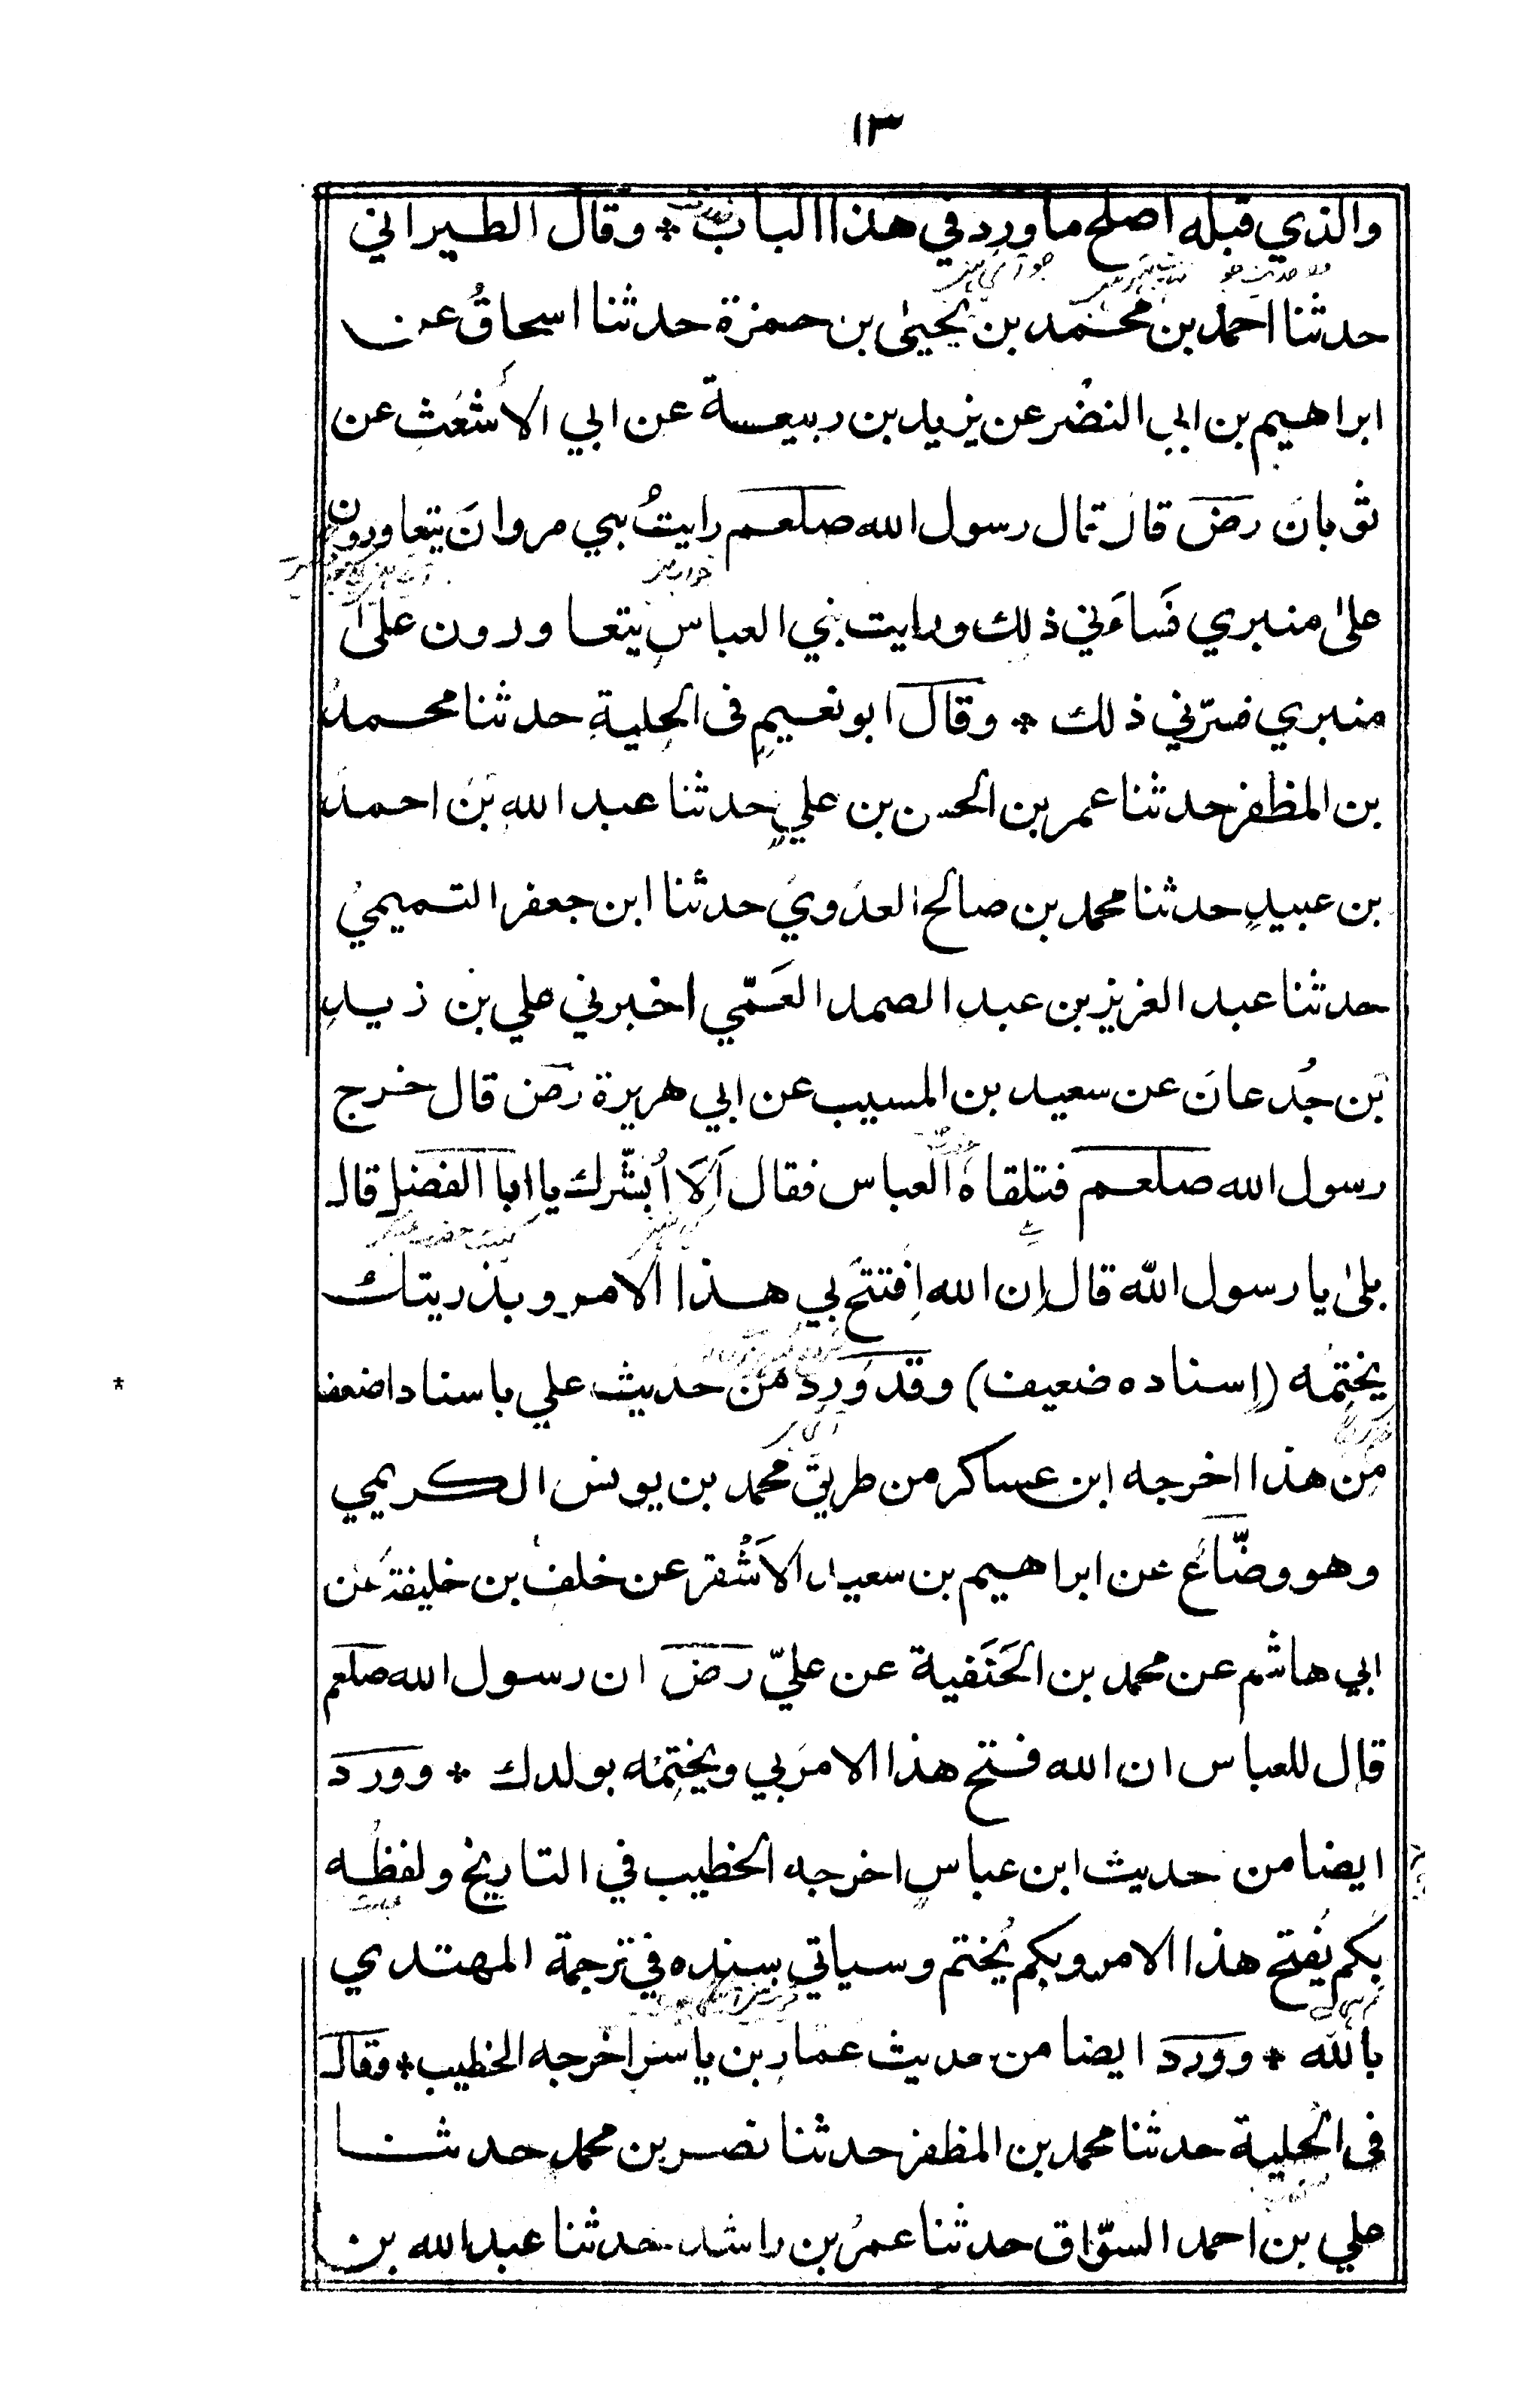 ١٣
والذي قبله اصلح ما ورد في هذا الباب * وقال الطبراني
حدثنا احمد بن محمد بن يحيىٰ بن حمزة حدثنا اسحاقُ عن
ابراهيم بن ابي النضر عن يزيد بن ربيعة عن ابي الأشعَث عن
ثوبانَ رضَ قال قال رسول الله صلعم رايتُ بني مروانَ يتعاورون
علىٰ منبري فَساءَني ذلك ورايت بني العباسِ يتعاورون علىٰ
منبري فسرّني ذلك * وقال ابو نعيمٍ فى الحِليةِ حدثنا محمدُ
بن المظفر حدثنا عمر بن الحسن بن عليٍ حدثنا عبد اللهِ بنَ احمدَ
بن عبيدٍ حدثنا محمد بن صالح العدَويَ حدثنا ابن جعفر التميميُ
حدثنا عبد العزيز بن عبد الصمد العَمّي اخبرني علي بن زيدِ
بَن جُدعانَ عن سعيد بن المسيب عن ابي هريرة رضَ قال خرج
رسول الله صلعم فتلقاهُ العباس فقال اَلَا اُبشّرك يا ابا الفضل قال
بلىٰ يا رسول الله قال اِن الله اِفتتَح بي هذا الامر وبذريتك
يختِمُه (اِسناده ضعيف) وقد وَردَ من حديث علي باسناد اضعف
مِن هذا اخرجه ابن عساكر من طريق محمد بن يونس الكريمي
وهو وضّاعَ عن ابراهيم بن سعيد الاَشُقر عن خلف بن خليفةَ عن
ابي هاشم عن محمد بن الحَنَفية عن عليّ رضَ ان رسول الله صلعم
قال للعباس ان الله فتح هذا الامرَ بي ويختِمُه بولدك * وورد
ايضا من حديث ابن عباسٍ اخرجه الخطيب في التاريخ ولفظُه
بِكم يُفتح هذا الامر وبكم يُختم وسياتي سنده في ترجمة المهتدي
بالله * وورد ايضا من حديث عمّارِ بن ياسرٍ اخرجه الخطيب * وقال
فى الحِلية حدثنا محمد بن المظفر حدثنا نصر بن محمد حدثنا
علي بن احمد السوّاق حدثنا عمرُ بن راشد حدثنا عبد الله بن
*